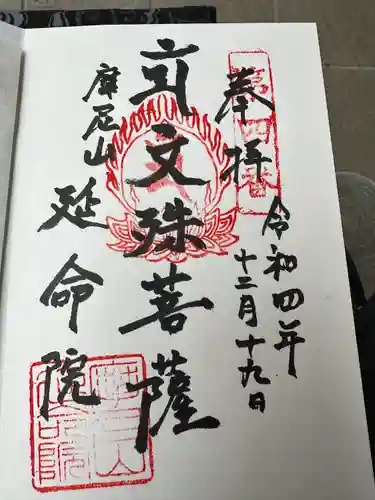 奉拝
第四番
令和四年
十二月十九日
文殊菩薩
摩尼山
延命院